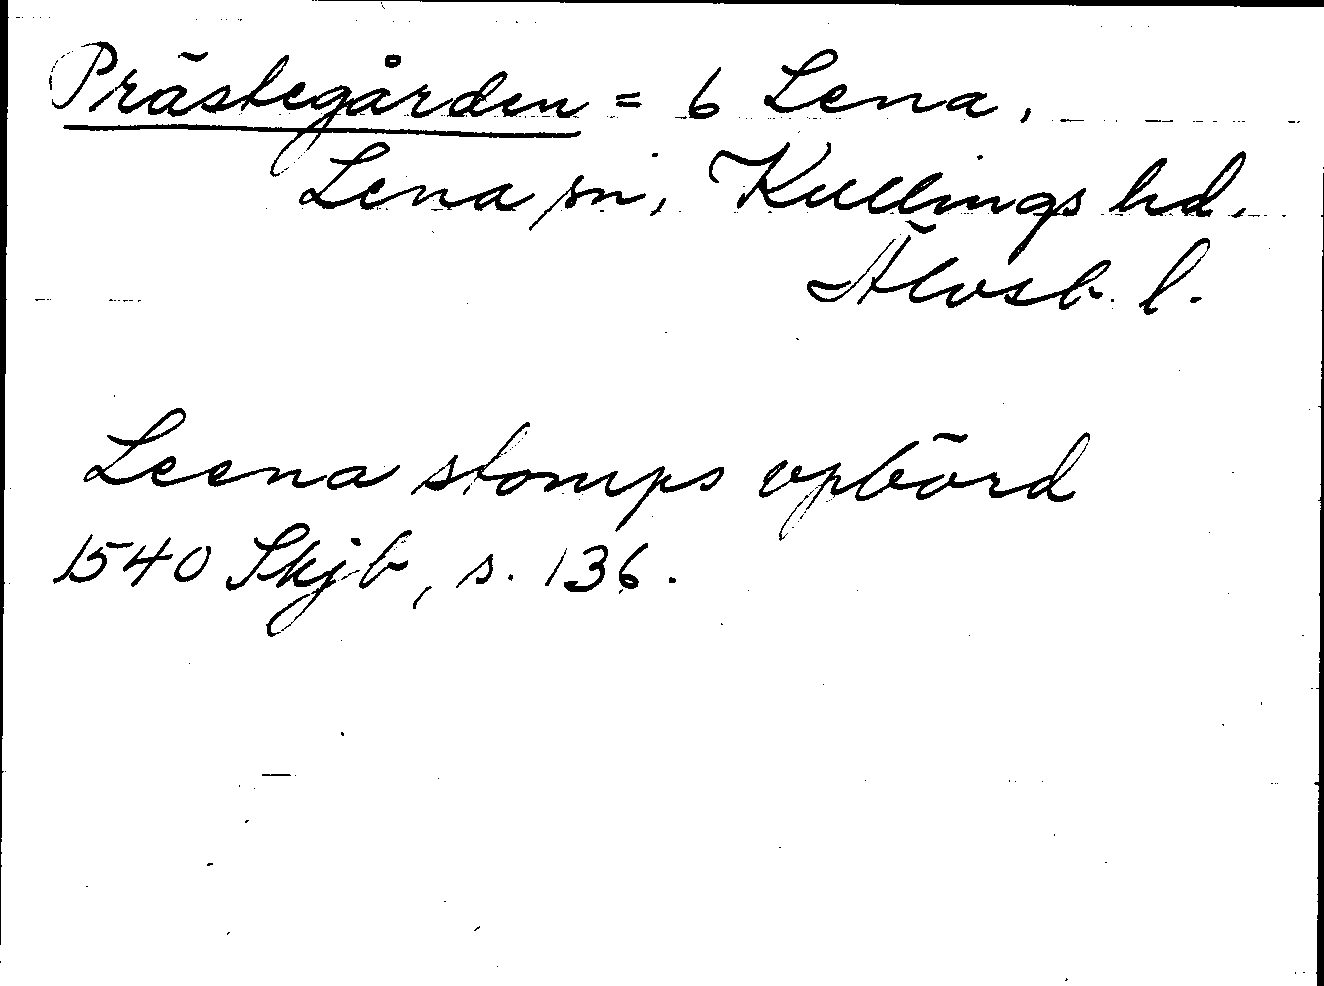 Prästegården = 6 Lena,
Lena sn, Kullings hd.
Älvsb. l.
Leena stomps vpbörd
1540 Skjb, s. 136.